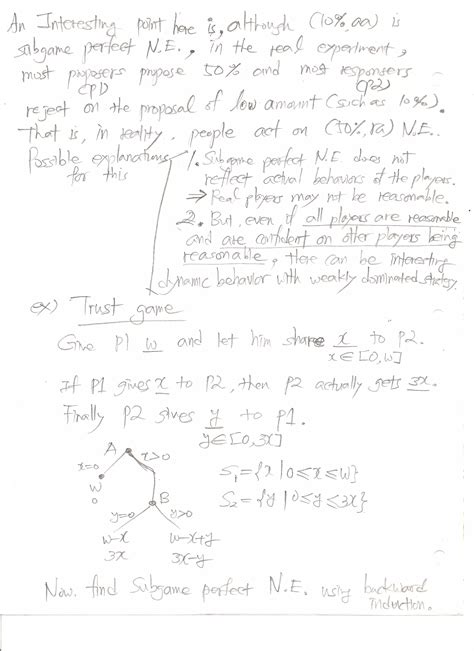 An Interesting point here is, although (10%, aa) is
subgame perfect N.E., in the real experiment,
most proposers propose 50% and most responsers
(P1) (P2)
reject on the proposal of low amount (such as 10%).
That is, in reality, people act on (50%, ra) N.E..
Possible explanations for this
1. Subgame perfect N.E. does not
reflect actual behaviors of the players.
⇒ Real players may not be reasonable.
2. But, even if all players are reasonable
and are confident on other players being
reasonable, there can be interesting
dynamic behavior with weakly dominated strategy.
ex) Trust game
Give P1 w and let him share x to P2.
x∈[0,w]
If P1 gives x to P2, then P2 actually gets 3x.
Finally P2 gives y to P1.
y∈[0,3x]
A
x=0 x>0
w
0
B
y=0 y>0
w-x w-x+y
3x 3x-y
S₁={x|0≤x≤w}
S₂={y|0≤y≤3x}
Now, find Subgame perfect N.E. using backward
induction.